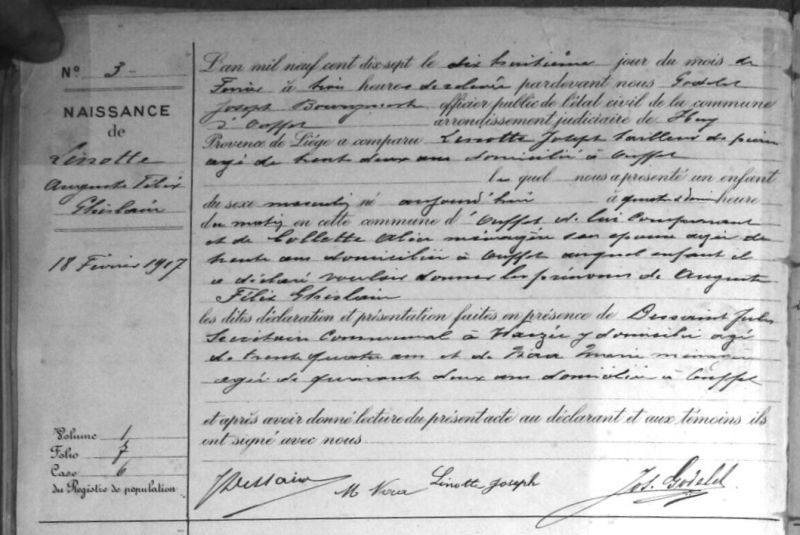 N° 3
NAISSANCE
de
Linotte
Auguste Félix
Ghislain
18 Février 1917
Volume 1
Folio 7
Case 6
du Registre de population
L'an mil neuf cent dix sept le dix huitième jour du mois de
Février à trois heures de relevée pardevant nous Godelet
Joseph Bourgmestre officier public de l'état civil de la commune
d'Ouffet arrondissement judiciaire de Huy
Province de Liége a comparu Linotte Joseph tailleur de pierres
agé de trent deux ans domicilié à Ouffet
le quel nous a présenté un enfant
du sexe masculin né aujourd'hui à quatre heure
du matin en cette commune d'Ouffet de lui Comparant
et de Collette Alia ménagère son épouse agée de
trente ans domiciliée à Ouffet auquel enfant il
a déclaré vouloir donner les prénoms de Auguste
Félix Ghislain
les dites déclaration et présentation faites en présence de Dessaint Jules
Secrétaire Communal à Warzée y domicilié agé
de trent quatre ans et de Marie ménagère
agée de quarante deux ans domiciliée à Ouffet
et après avoir donné lecture du présent acte au déclarant et aux témoins ils
ont signé avec nous
J Dessain M Linotte Joseph Jos. Godelet